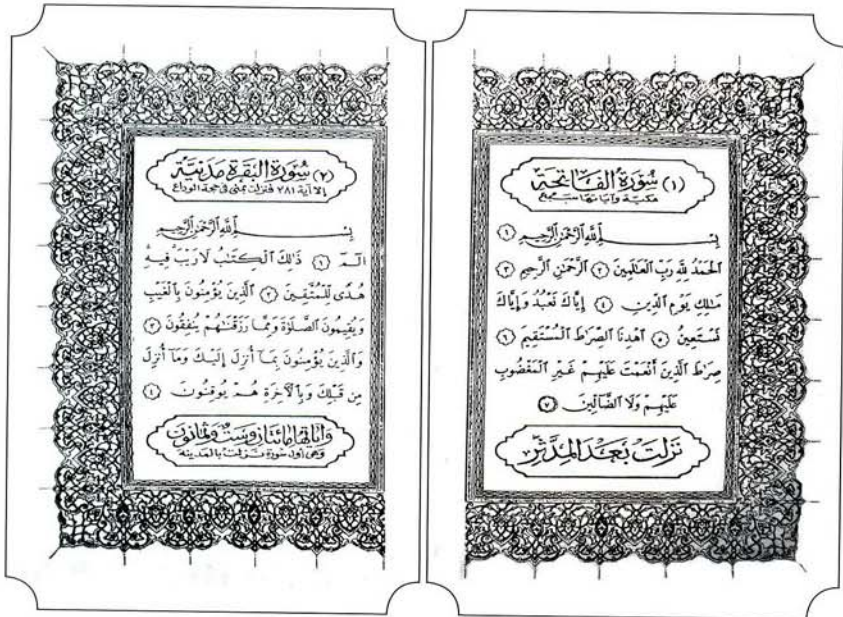 (١) سُورَةُ الفَاتِحَة
مكية وآياتها سبع
بِسْمِ اللَّهِ الرَّحْمَٰنِ الرَّحِيمِ ١
الْحَمْدُ لِلَّهِ رَبِّ الْعَالَمِينَ ٢ الرَّحْمَٰنِ الرَّحِيمِ ٣
مَالِكِ يَوْمِ الدِّينِ ٤ إِيَّاكَ نَعْبُدُ وَإِيَّاكَ
نَسْتَعِينُ ٥ اهْدِنَا الصِّرَاطَ الْمُسْتَقِيمَ ٦
صِرَاطَ الَّذِينَ أَنْعَمْتَ عَلَيْهِمْ غَيْرِ الْمَغْضُوبِ
عَلَيْهِمْ وَلَا الضَّالِّينَ ٧
نَزَلَت بَعْدَ المُدَّثِّر
(٢) سُورَةُ البَقَرَة مَدَنِيَّة
إلا آية ٢٨١ فنزلت بمنى في حجة الوداع
بِسْمِ اللَّهِ الرَّحْمَٰنِ الرَّحِيمِ
الم ١ ذَٰلِكَ الْكِتَابُ لَا رَيْبَ فِيهِ
هُدًى لِّلْمُتَّقِينَ ٢ الَّذِينَ يُؤْمِنُونَ بِالْغَيْبِ
وَيُقِيمُونَ الصَّلَاةَ وَمِمَّا رَزَقْنَاهُمْ يُنفِقُونَ ٣
وَالَّذِينَ يُؤْمِنُونَ بِمَا أُنزِلَ إِلَيْكَ وَمَا أُنزِلَ
مِن قَبْلِكَ وَبِالْآخِرَةِ هُمْ يُوقِنُونَ ٤
وَآياتها مائتان وست وثمانون
وهي أول سورة نزلت بالمدينة